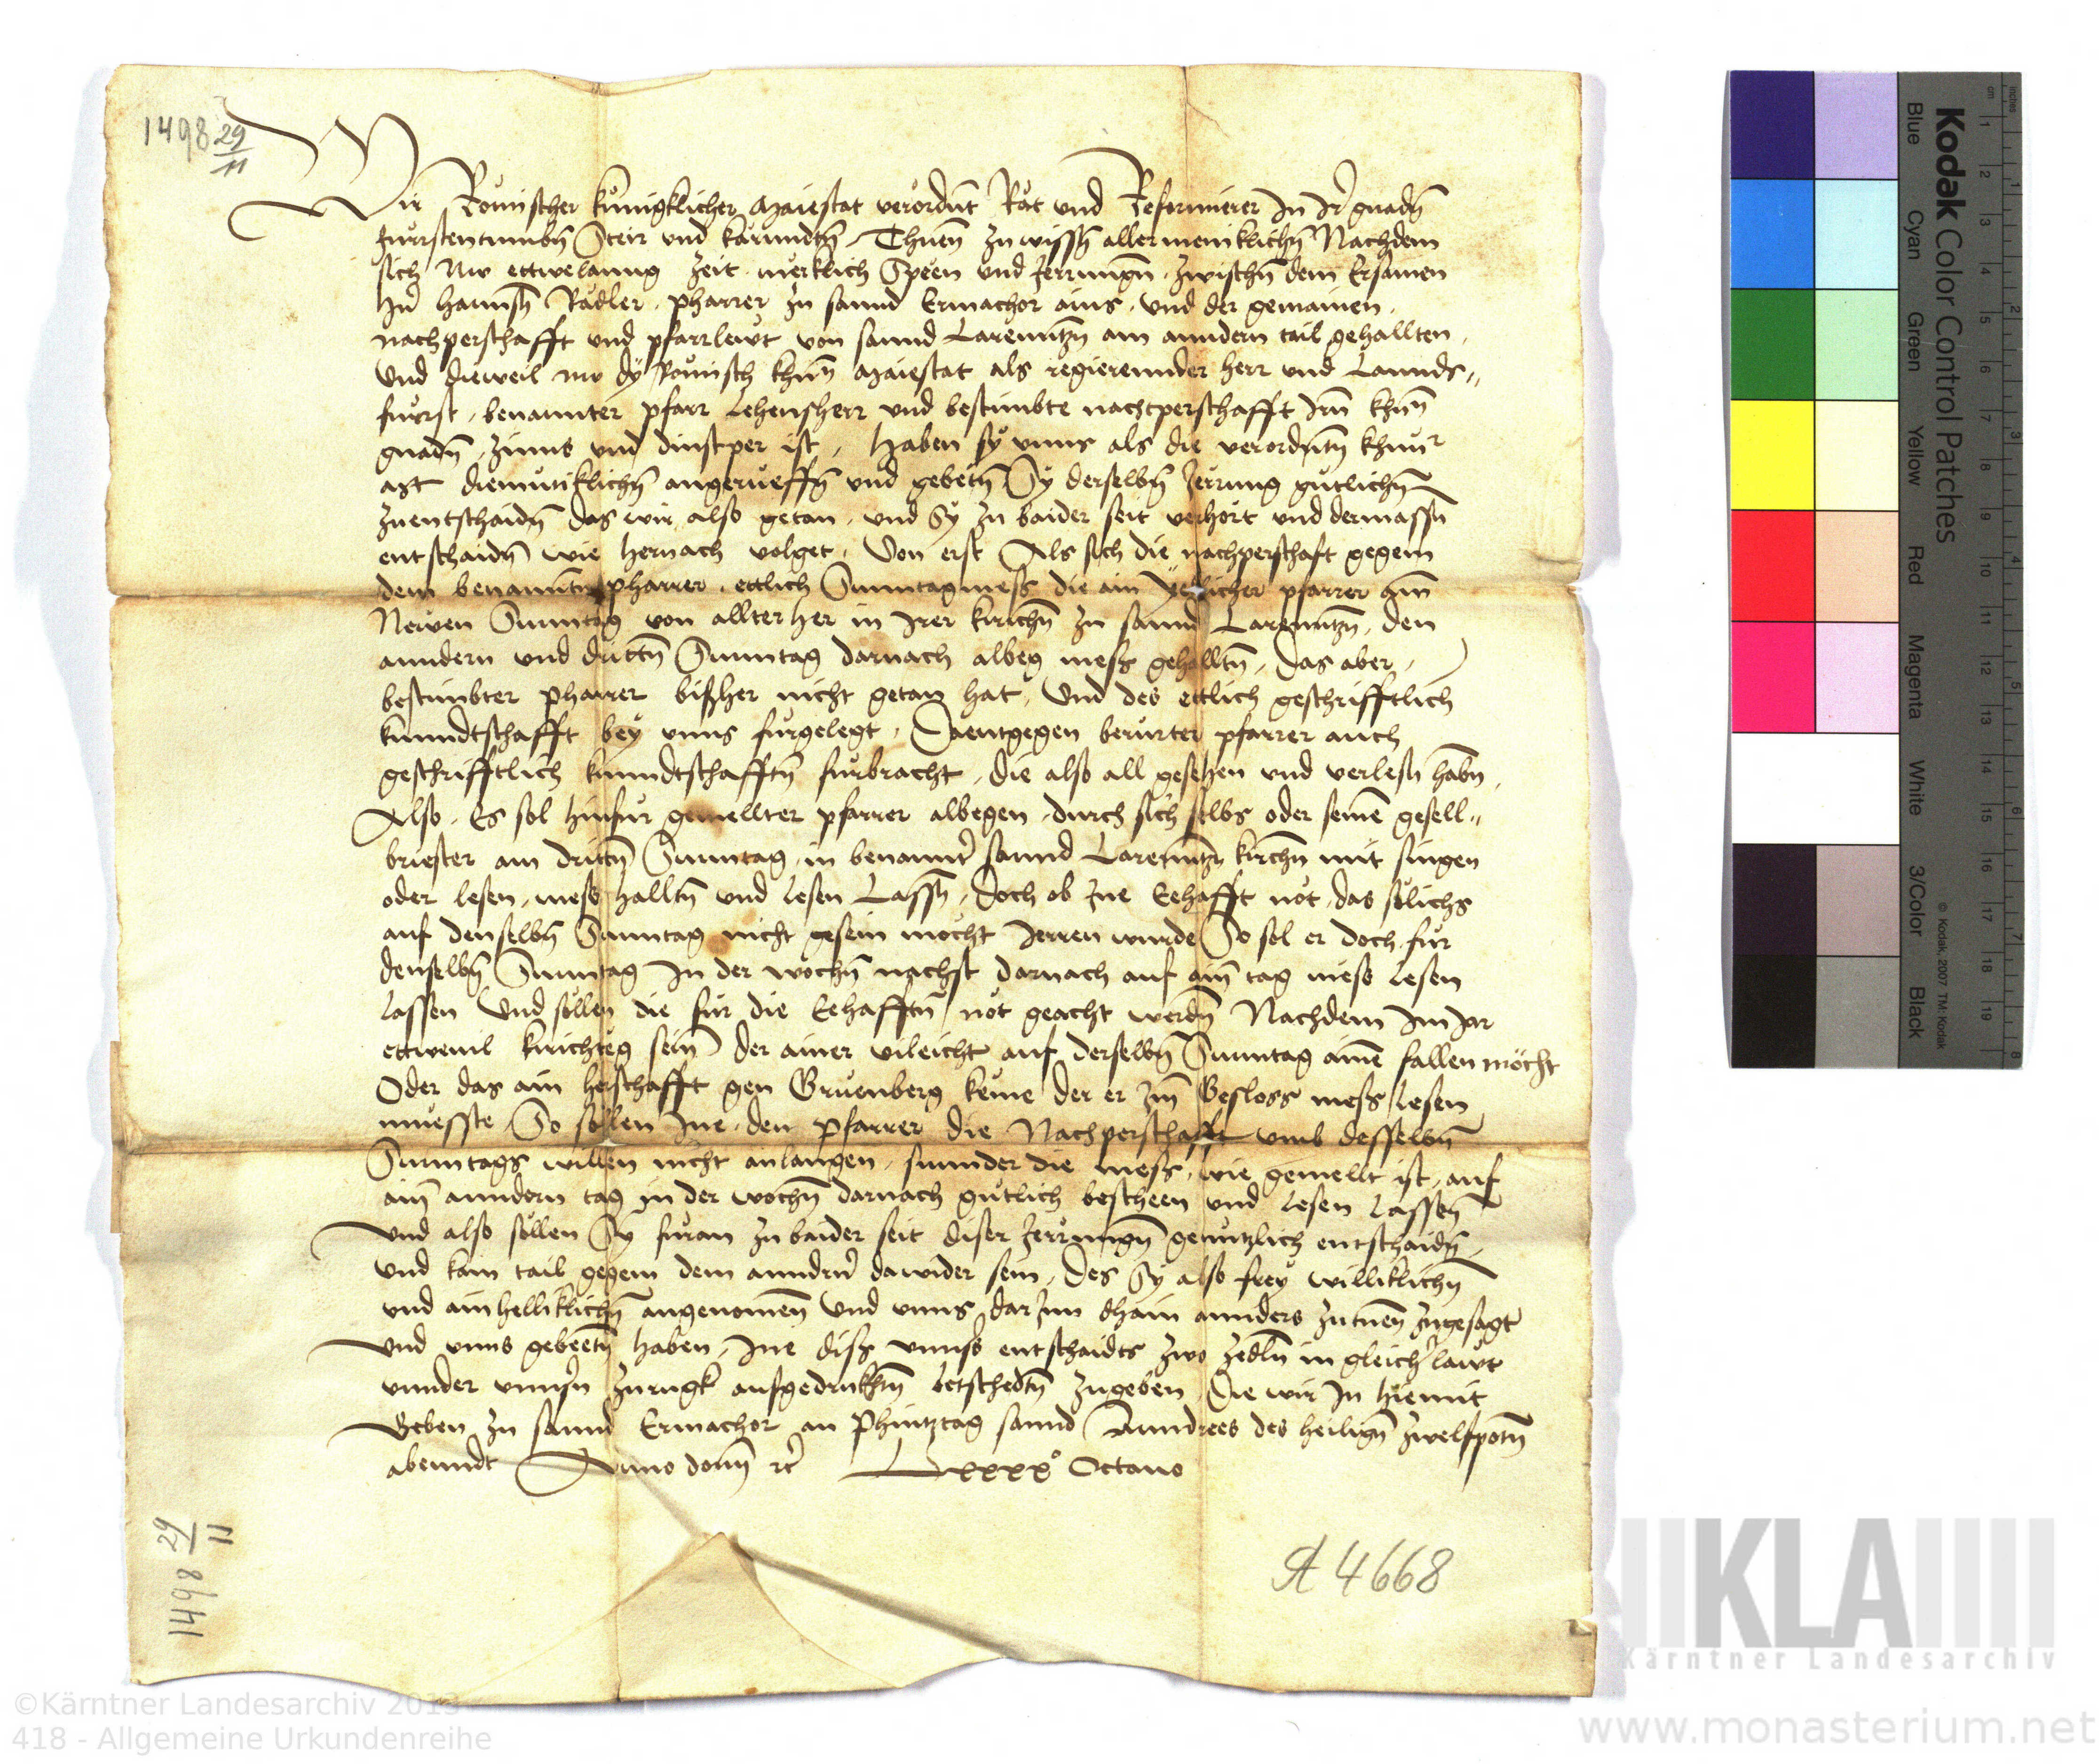 1498 29/11
Wir Römischer kunigklicher Maiestat verordnt Rät und Reformierer In Ir gnadn̄
furstentumbn̄ Steir und kärnndtn̄ Thuen zu wissn̄ allermeniklichn̄ Nachdem
sich nw ettwelanng zeit merklich Speen und Jerrungn̄ zwischn̄ dem Ersamen
hern̄ hannsn̄ Rädler pharrer zu sannd Ermachor ains und der gemainen
nachperschafft und pfarrlewt von sannd Larenntzn̄ am anndern tail gehallten
Und dieweil nw dy Römisch khun̄ Maiestat als regierennder herr und Lannds„
furst benannter pfarr Lehensherr und bestimbte nachperschafft Irn̄ khun̄
gnadn̄ zinns und dinstper ist haben sy unns als die verordntn̄ khunr
Mt diemutiklichn̄ angerueffn̄ und gebetn̄ Sy derselbn̄ Jerrung gutlichn̄
zuentschaidn̄ das wir also getan und Sy zu baider seit verhört und dermassn̄
entschaidn̄ wie hernach volget Von erst Als sich die nachperschaft gegem
dem benanntn̄ pharrer ettlich Sunntagmess die ain yetlicher pfarrer am̄
Newen Sunntag von allter her in Irer kirichn̄ zu sannd Larenntzn̄ den
anndern und drittn̄ Sunntag darnach albeg mess gehalltn̄ das aber
bestimbter pharrer bißher nicht getan hat Und des ettlich geschrifftlich
kunndtschafft bey unns furgelegt Daentgegen berurter pfarrer auch
geschrifftlich kunndtschafftn̄ furbracht die also all gesehen und verlesn̄ habn̄
Also Es sol hinfur gemellter pfarrer albegen durch sich selbs oder seinē gesell„
briester am drittn̄ Sunntag in benannter sannd Larenntzn̄ kirchn̄ mit singen
oder lesen mess halltn̄ und lesen Lassn̄ Doch ob Ine Eehafft not das sölichs
auf denselbn̄ Sunntag nicht gesein möcht Jerren wurde So sol er doch fur
denselbn̄ Sunntag In der wochn̄ nachst darnach auf ain̄ tag mess Lesen
lassen Und sollen die fur die Eehafftn̄ nöt geacht werdn̄ Nachdem Im Jar
ettwenil kirichteg sein der ainer vileicht auf derselbn̄ Sunntag ainē fallen möcht
Oder das ain herschafft gen Gruenberg keme der er Im̄ Gesloss mess lesen
muesste So sollen Ine den Pfarrer die Nachperschafft umb desselbn̄
Sunntags willen nicht anlangen sunnder die mess wie gemellt ist auf
ain̄ anndern tag in der wochn̄ darnach gutlich bescheen und Lesen Lassen
Und also sollen Sy furan zu baider seit diser Jerrungn̄ genntzlich entschaidn̄
und kain tail gegem dem anndern̄ dawider sein Des Sy also frey williklichn̄
und ainhelliklichn̄ angenomen̄ Und unns darInn dhain annders zutuen̄ zugesagt
Und unns gebeetn̄ haben Ine diss unnsers entschaidts zwo zedln̄ in gleicher lawt
unnder unnsern̄ zurugk aufgedrukhtn̄ Betschedtn̄ zugeben Die wir In hiemit
Geben zu sannd Ermachor an Phintztag sannd Anndrees des heilign̄ zwelfpotn̄
abenndt Anno domī rc Lxxxxo Octavo
A 4668
1498 29/11
Kodak Color Control Patches
Blue Cyan Green Yellow Red Magenta White 3/Color Black
© Kodak, 2007 TM: Kodak
KLA
Kärntner Landesarchiv
©Kärntner Landesarchiv 2013
418 - Allgemeine Urkundenreihe
www.monasterium.net